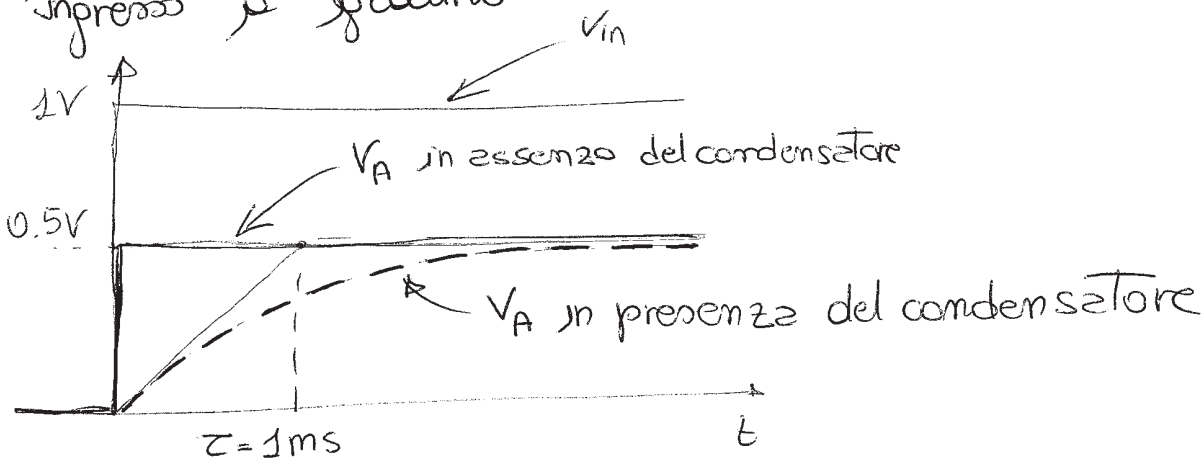 ingresso
Vin
1V
VA in assenza del condensatore
0.5V
VA in presenza del condensatore
τ = 1ms
t